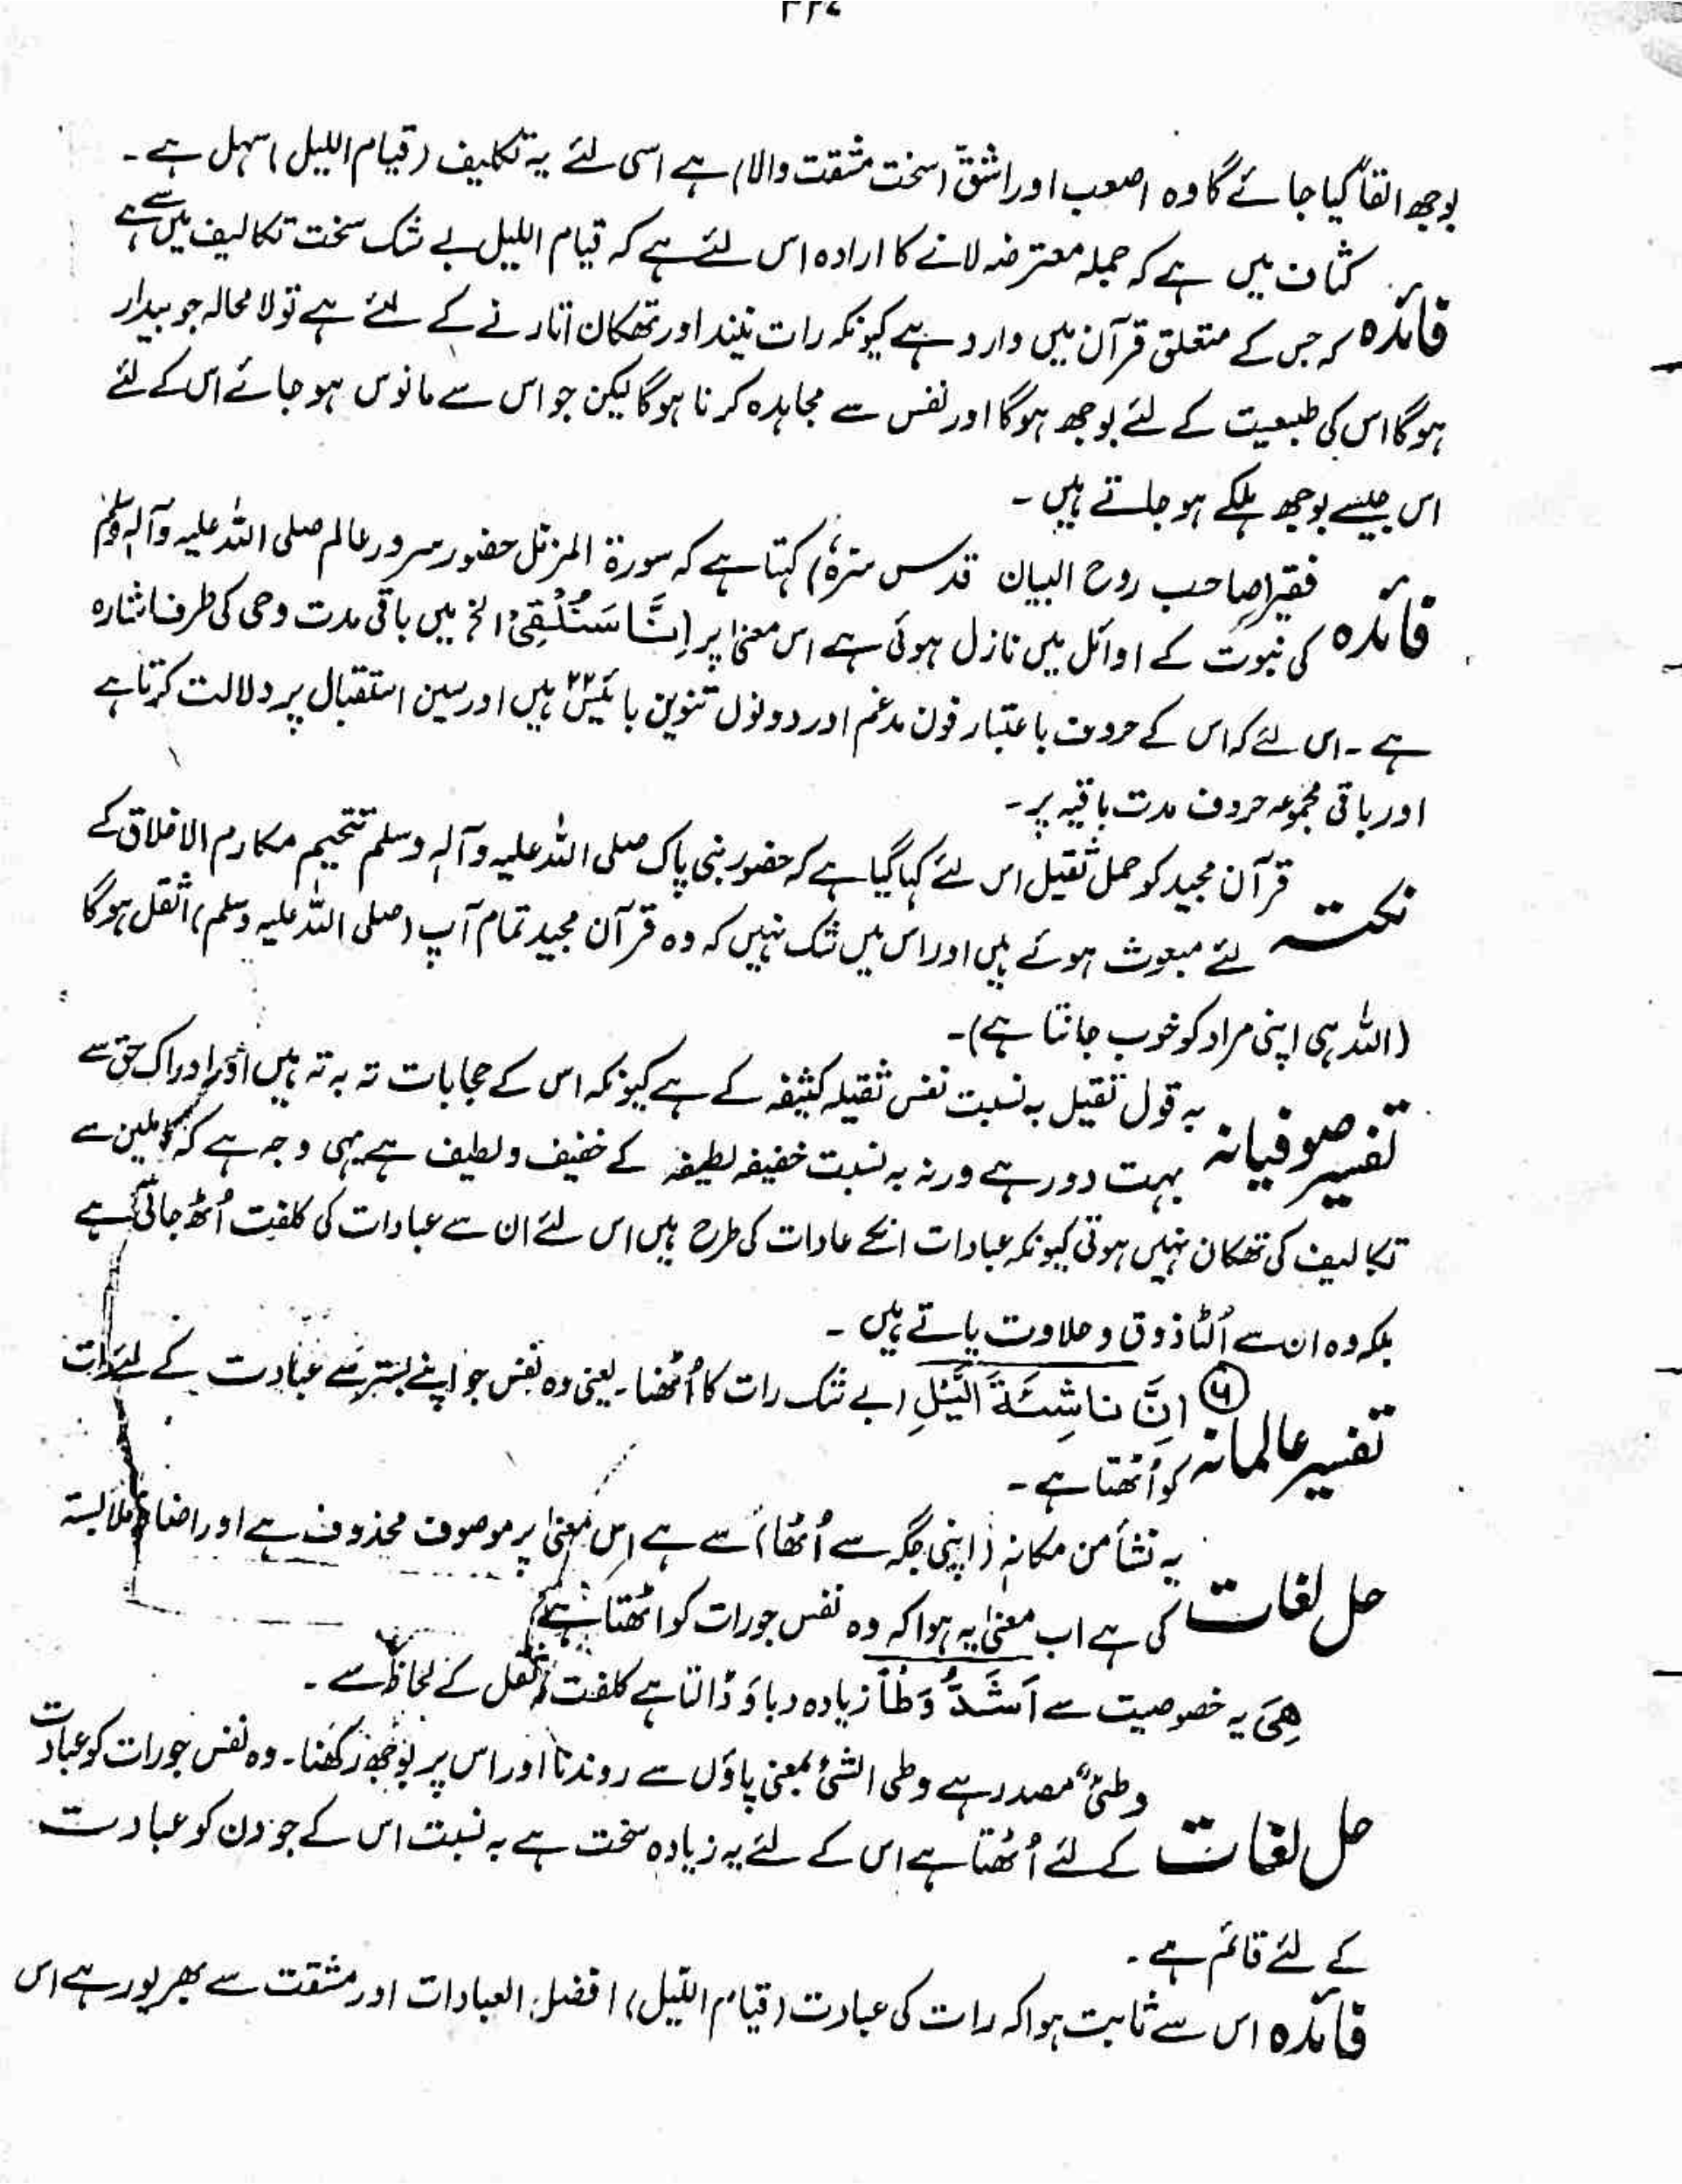 بوجھ القاً کیا جائے گا وہ اصعب اور اشقّ (سخت مشقت والا) ہے اسی لئے یہ تکلیف (قیام اللیل) سہل ہے۔
فائدہ کشاف میں ہے کہ جملہ معترضہ لانے کا ارادہ اس لئے ہے کہ قیام اللیل بے شک سخت تکالیف میں سے ہے
کہ جس کے متعلق قرآن میں وارد ہے کیونکہ رات نیند اور تھکان اتارنے کے لئے ہے تو لا محالہ جو بیدار
ہوگا اس کی طبعیت کے لئے بوجھ ہوگا اور نفس سے مجاہدہ کرنا ہوگا لیکن جو اس سے مانوس ہو جائے اس کے لئے
اس جیسے بوجھ ہلکے ہو جاتے ہیں۔
فائدہ فقیر (صاحب روح البیان قدس سرہٗ) کہتا ہے کہ سورۃ المزمل حضور سرور عالم صلی اللہ علیہ وآلہ وسلم
کی نبوت کے اوائل میں نازل ہوئی ہے اس معنیٰ پر اِنَّا سَنُلْقِیْ الخ میں باقی مدت وحی کی طرف اشارہ
ہے۔ اس لئے کہ اس کے حروف باعتبار نون مدغم اور دونوں تنوین بائیس ۲۲ ہیں اور سین استقبال پر دلالت کرتا ہے
اور باقی مجموعہ حروف مدت باقیہ پر۔
نکتہ قرآن مجید کو حمل ثقیل اس لئے کہا گیا ہے کہ حضور نبی پاک صلی اللہ علیہ وآلہ وسلم تتمیم مکارم الاخلاق کے
لئے مبعوث ہوئے ہیں اور اس میں شک نہیں کہ وہ قرآن مجید تمام آپ (صلی اللہ علیہ وسلم) اثقل ہوگا
(اللہ ہی اپنی مراد کو خوب جانتا ہے)۔
تفسیر صوفیانہ یہ قول ثقیل بہ نسبت نفس ثقیلہ کثیفہ کے ہے کیونکہ اس کے حجابات تہ بہ تہ ہیں اور ادراک حق سے
بہت دور ہے ورنہ بہ نسبت خفیفہ لطیفہ کے خفیف و لطیف ہے یہی وجہ ہے کہ کاملین سے
تکالیف کی تھکان نہیں ہوتی کیونکہ عبادات انکے عادات کی طرح ہیں اس لئے ان سے عبادات کی کلفت اُٹھ جاتی ہے
بلکہ وہ ان سے اُلٹا ذوق و حلاوت پاتے ہیں۔
تفسیر عالمانہ ⑥ اِنَّ نَاشِئَةَ الَّیْلِ (بے شک رات کا اُٹھنا۔ یعنی وہ نفس جو اپنے بستر سے عبادت کے لئے رات
کو اُٹھتا ہے۔
حل لغات یہ نشأ من مکانہ (اپنی جگہ سے اُٹھا) سے ہے اس معنیٰ پر موصوف محذوف ہے اور اضافۃ ملابستہ
کی ہے اب معنیٰ یہ ہوا کہ وہ نفس جو رات کو اٹھتا ہے
ھِیَ یہ خصوصیت سے اَشَدُّ وَطْاً زیادہ دباؤ ڈالتا ہے کلفت و ثقل کے لحاظ سے۔
حل لغات وطئٌ مصدر ہے وطی الشئ بمعنی پاؤں سے روندنا اور اس پر بوجھ رکھنا۔ وہ نفس جو رات کو عبادت
کے لئے اُٹھتا ہے اس کے لئے یہ زیادہ سخت ہے بہ نسبت اس کے جو دن کو عبادت
کے لئے قائم ہے۔
فائدہ اس سے ثابت ہوا کہ رات کی عبادت (قیام اللیل) افضل العبادات اور مشقت سے بھرپور ہے اس